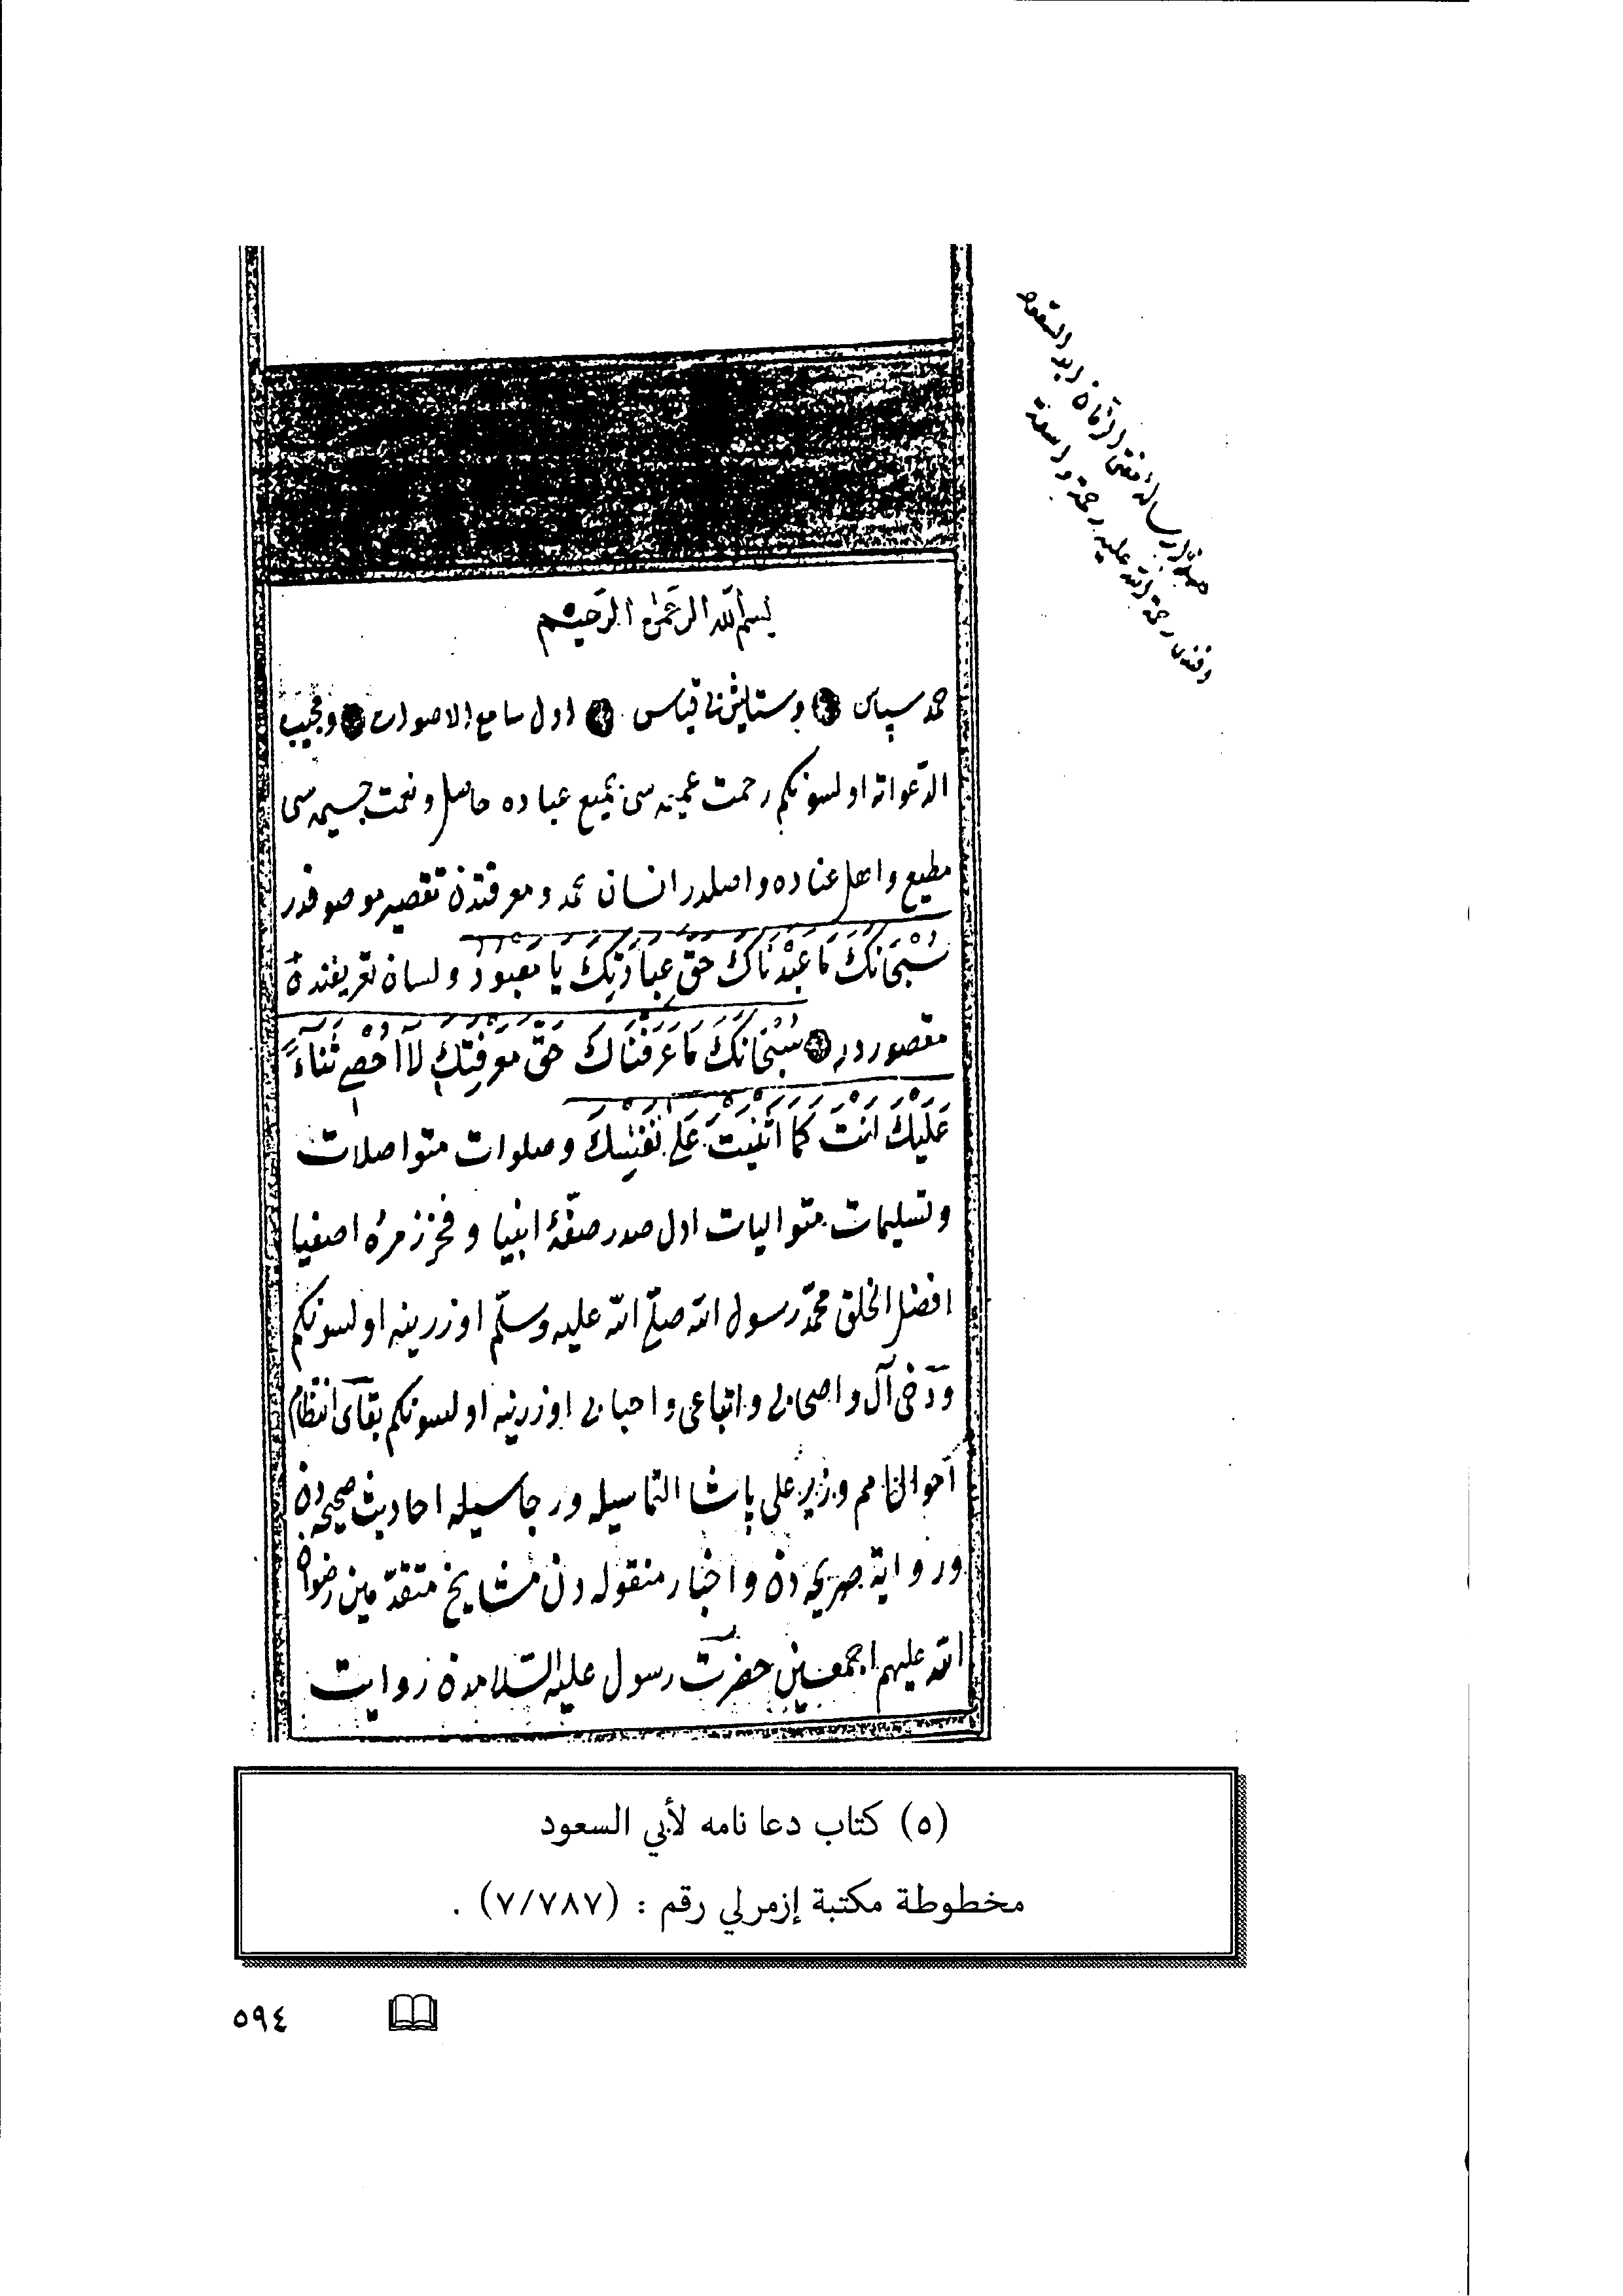 هذه الرسالة مفتى الزمان ابو السعود
افندى رحمة الله عليه رحمة واسعة
بسم الله الرحمن الرحيم
حمد سپاس وستايش بى قياس اول سامع الاصوات ومجيب
الدّعواته اولسونكم رحمت عميمه سى جميع عباده حاصل ونعمت جسيمه سى
مطيع واهل عناده واصلدر انسان حمد ومعرفتدن تقصير موصوفدر
سُبْحَانَكَ مَا عَبَدْنَاكَ حَقَّ عِبَادَتِكَ يَا مَعْبُودُ ولسان تعريفنده
مقصوردر سُبْحَانَكَ مَا عَرَفْنَاكَ حَقَّ مَعْرِفَتِكَ لَا اُحْصِي ثَنَاءً
عَلَيْكَ اَنْتَ كَمَا اَثْنَيْتَ عَلَى نَفْسِكَ وصلوات متواصلات
وتسليمات متواليات اول صدر صفّهٔ انبيا وفخر زمرهٔ اصفيا
افضل الخلق محمّد رسول الله صلّى الله عليه وسلّم اوزرينه اولسونكم
ودخى آل واصحابى واتباعى واحبابى اوزرينه اولسونكم بقاى انتظام
احوالنامم وزير على پاشا التماسيله ورجاسيله احاديث صحيحه دن
وروايۀ صريحه دن واخبار منقوله دن مشايخ متقدّمين رضوان
الله عليهم اجمعين حضرت رسول عليه السّلامدن روايت
(٥) كتاب دعا نامه لأبي السعود
مخطوطة مكتبة إزمرلي رقم : (٧/٧٨٧) .
٥٩٤